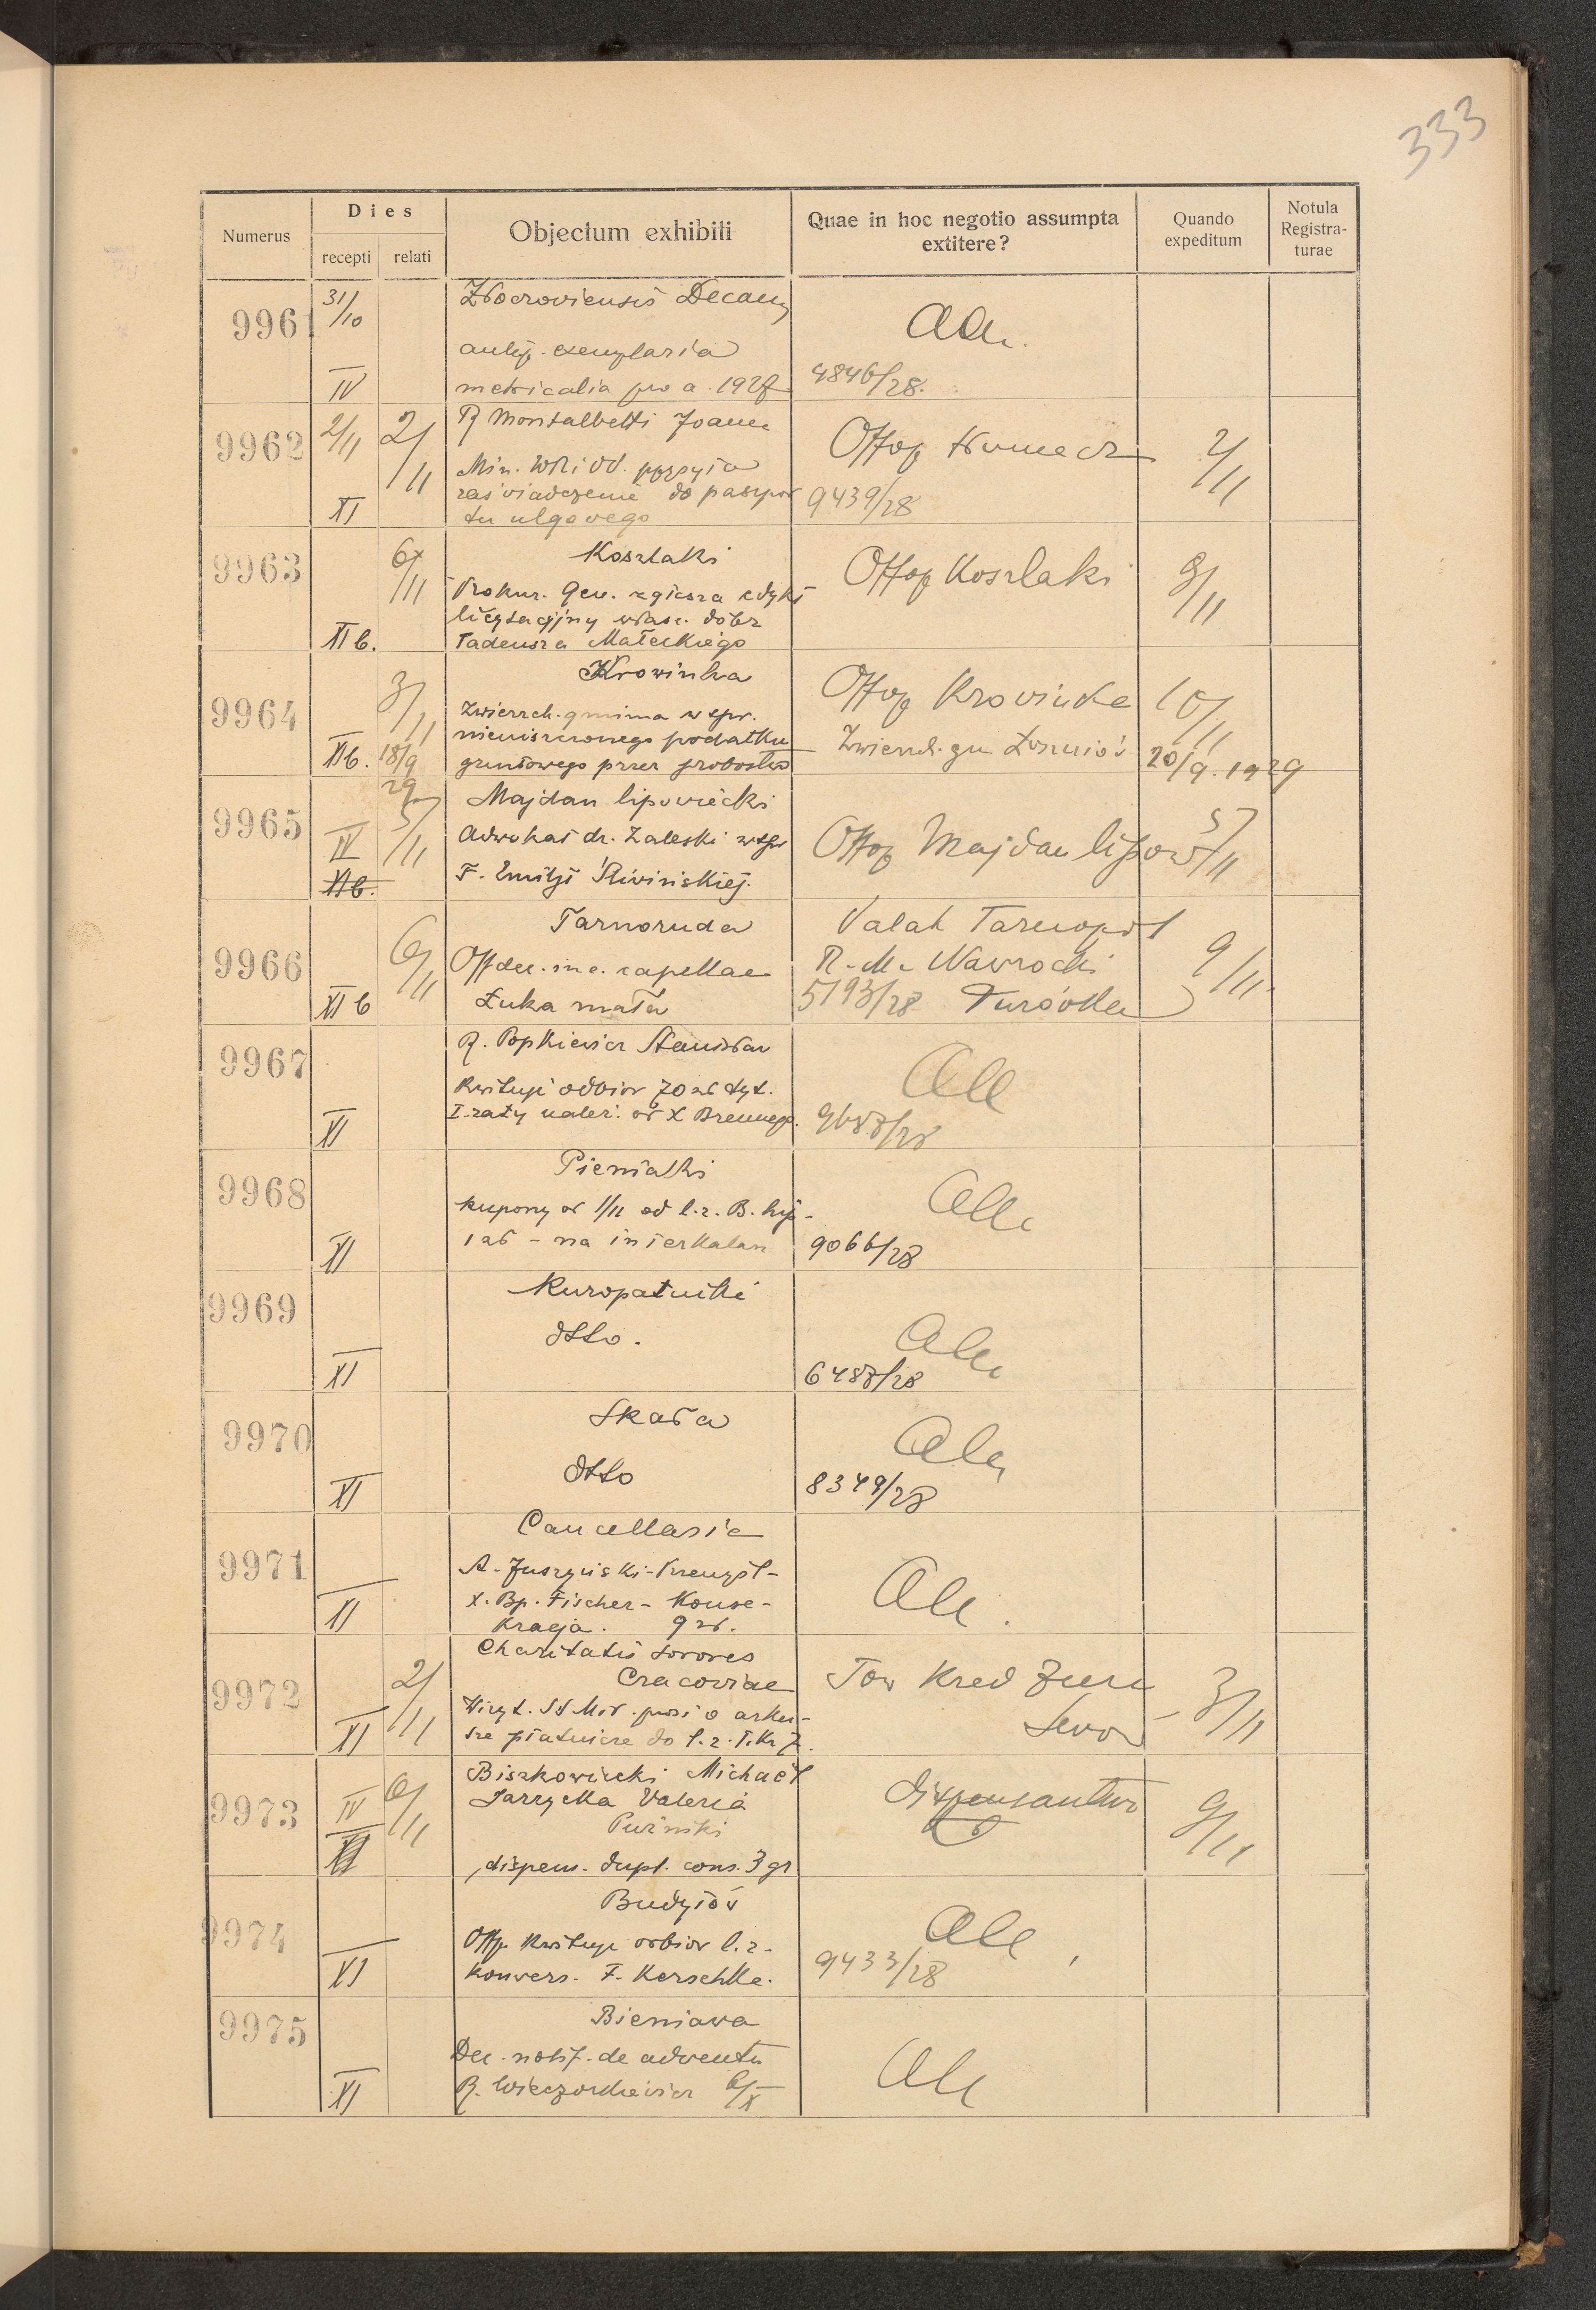 333
Numerus
Dies
recepti
relati
Objectum exhibiti
Quae in hoc negotio assumpta extitere?
Quando expeditum
Notula Registra-turae
9961
31/10
IV
Złoczoviensis Decanus
exemplaria
metricalia pro a. 1927
aa.
4846/28.
9962
2/11
2/11
XI
R Montalbetti Joann
Min. WRiOP. przysyła
zaświadczenie do paszpor
tu ulgowego
9439/28
2/11
9963
6/11
XI b.
Koszlaki
Prokur. Gen. zgłasza edykt
licytacyjny własc. dóbr
Tadeusza Małeckiego
Offop Koszlaki
9/11
9964
3/11
XI b.
18/9
29
Krowinka
Zwierzch. gmina w spr.
nieuiszczonego podatku
gruntowego przez probostwo
Offop Krowinka
Zwierzch. gm Łoszniów
10/11
20/9. 1929
9965
IV
XI b.
5/11
Majdan lipowiecki
Adwokat dr. Zaleski w spr
F. Emilji Śliwińskiej.
Offop Majdan lipow
5/11
9966
6/11
XI b
Tarnoruda
Offdec. in c. capellae
Łuka mała
Valah Tarnopol
R. M. Nawrocki
5193/28 Turówka
9/11
9967
XI
R. Popkiewicz Stanisław
Kwituje odbiór 70 zł tyt.
I. raty należ. od X Brennego.
aa
9688/28
9968
XI
Pieniaki
kupony od 1/11 od l. z. B. hip.
1 zł - na interkalar
aa
9066/28
9969
XI
Kuropatniki
dtto.
aa
6488/28
9970
XI
Skała
dtto
aa
8349/28
9971
XI
Cancellaria
A. Juszyński - Przemyśl -
X. Bp. Fischer - Konse-
kracja. 9 zł.
aa.
9972
2/11
XI
Charitatis Sorores
Cracoviae
Wizyt. SS Mił. prosi o arku-
sze płatnicze do l. z. T. Kr Z.
Tow Kred Ziem
Lwow
3/11
9973
IV
XI
6/11
Biszkowiecki Michaël
Jarzycka Valeria
Pużniki
dispens. dupl. cons. 3 gr
dispensantur
9/11
9974
XI
Budyłów
Offp Kwituje odbiór l. z.
konwers. F. Kerschke.
aa
9433/28
9975
XI
Bieniawa
Dec. notif. de adventu
R. Wieczorkiewicz 6/X
aa